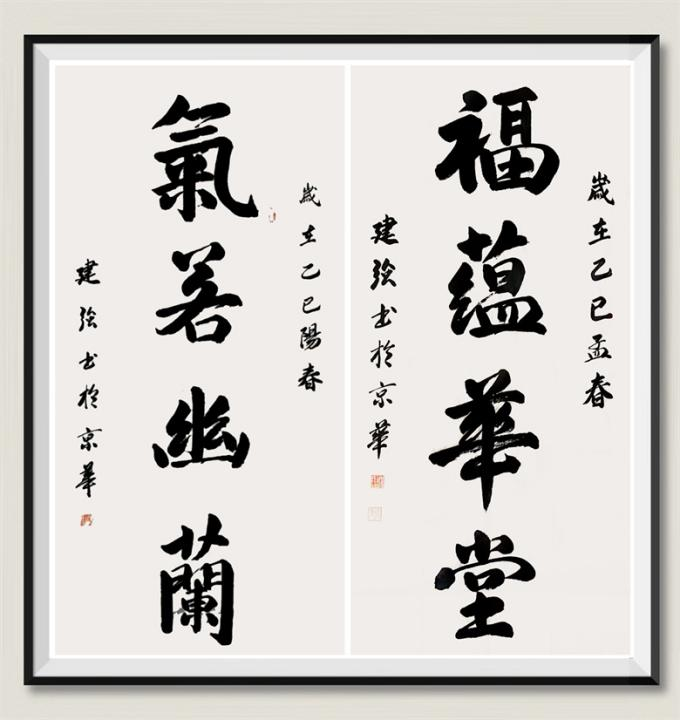 歲在乙巳孟春
福蘊華堂
建強書於京華
歲在乙巳陽春
氣若幽蘭
建強書於京華